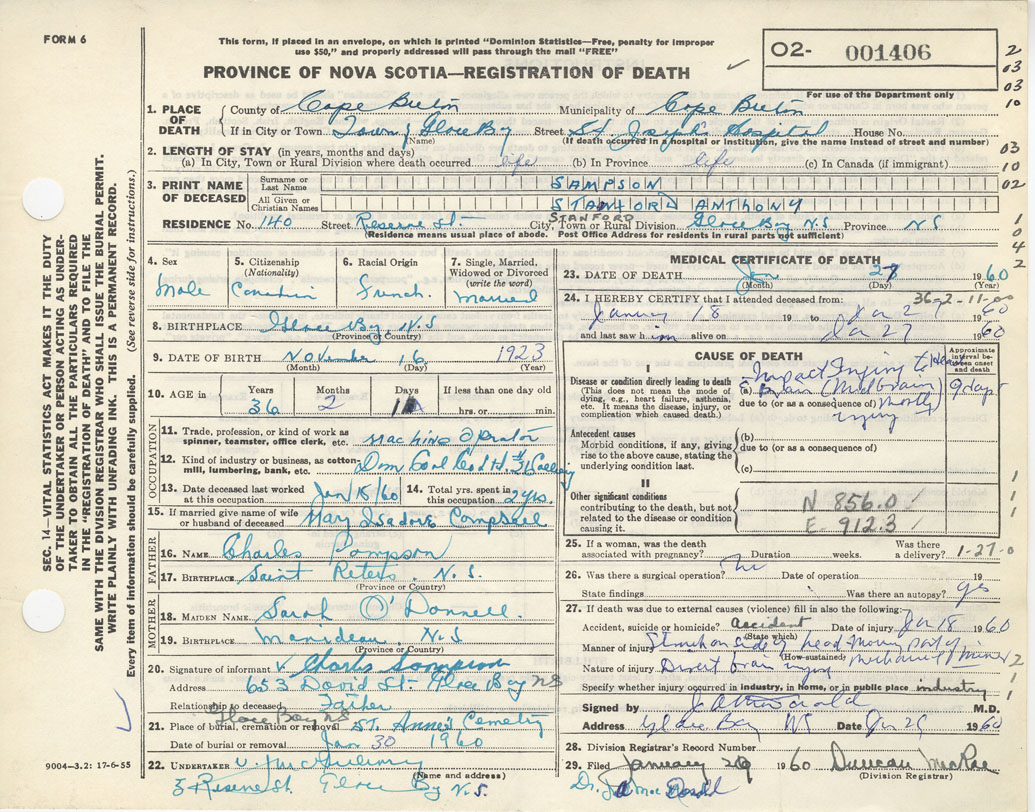 FORM 6
This form, if placed in an envelope, on which is printed "Dominion Statistics—Free, penalty for improper
use $50," and properly addressed will pass through the mail "FREE"
PROVINCE OF NOVA SCOTIA—REGISTRATION OF DEATH
O2- 001406
For use of the Department only
2
03
03
10
03
10
02
1
0
4
2
1. PLACE OF DEATH
County of Cape Breton Municipality of Cape Breton
If in City or Town Town of Glace Bay Street St. Joseph's Hospital House No.
(Name) (If death occurred in a hospital or institution, give the name instead of street and number)
2. LENGTH OF STAY (in years, months and days)
(a) In City, Town or Rural Division where death occurred life (b) In Province life (c) In Canada (if immigrant)
3. PRINT NAME OF DECEASED
Surname or Last Name SAMPSON
All Given or Christian Names STANFORD ANTHONY
STANFORD
RESIDENCE No. 140 Street Reserve St. City, Town or Rural Division Glace Bay N.S Province NS
(Residence means usual place of abode. Post Office Address for residents in rural parts not sufficient)
4. Sex
Male
5. Citizenship
(Nationality)
Canadian
6. Racial Origin
French
7. Single, Married, Widowed or Divorced
(write the word)
Married
8. BIRTHPLACE Glace Bay, N.S
(Province or Country)
9. DATE OF BIRTH November 16 1923
(Month) (Day) (Year)
10. AGE in
Years 36
Months 2
Days 11
If less than one day old
hrs. or min.
OCCUPATION
11. Trade, profession, or kind of work as spinner, teamster, office clerk, etc. Machine Oprator
12. Kind of industry or business, as cotton-mill, lumbering, bank, etc. Dom Coal Co Ltd
13. Date deceased last worked at this occupation Jan/18/60
14. Total yrs. spent in this occupation 2 yrs.
15. If married give name of wife or husband of deceased Mary Isadore
FATHER
16. NAME Charles Sampson
17. BIRTHPLACE Saint Peters, N.S.
(Province or Country)
MOTHER
18. MAIDEN NAME Sarah O'Donnell
19. BIRTHPLACE N.S
(Province or Country)
20. Signature of informant Charles Sampson
Address 653 David St. Glace Bay NS
Relationship to deceased Father
Glace Bay NS
21. Place of burial, cremation or removal St. Anne's Cemetery
Date of burial or removal Jan 30 1960
22. UNDERTAKER
(Name and address)
St. Glace Bay N.S.
MEDICAL CERTIFICATE OF DEATH
23. DATE OF DEATH Jan 27 1960
(Month) (Day) (Year)
36-2-11-00
24. I HEREBY CERTIFY that I attended deceased from:
January 18 19 to Jan 27 1960
and last saw him alive on Jan 27 1960
CAUSE OF DEATH
Approximate interval between onset and death
I
Disease or condition directly leading to death
(This does not mean the mode of dying, e.g., heart failure, asthenia, etc. It means the disease, injury, or complication which caused death.)
(a) Impact Injury to Head
Brain (Midbrain) mostly
injury
9 days
due to (or as a consequence of)
Antecedent causes
Morbid conditions, if any, giving rise to the above cause, stating the underlying condition last.
(b)
due to (or as a consequence of)
(c)
II
Other significant conditions contributing to the death, but not related to the disease or condition causing it.
N 856.0
E 912.3
1
1
1
1
25. If a woman, was the death associated with pregnancy? Duration weeks. Was there a delivery?
1-27-0
26. Was there a surgical operation? No Date of operation 19
State findings Was there an autopsy? yes
27. If death was due to external causes (violence) fill in also the following:
Accident, suicide or homicide? Accident Date of injury Jan 18 1960
(State which)
Manner of injury Struck on side of head moving part of
(How sustained) mechanical miner
Nature of injury Direct brain injury
Specify whether injury occurred in industry, in home, or in public place industry
2
1
Signed by M.D.
Address Glace Bay NS Date Jan 29 1960
28. Division Registrar's Record Number
29. Filed January 29 1960 Duncan MacRae
(Division Registrar)
SEC. 14—VITAL STATISTICS ACT MAKES IT THE DUTY
OF THE UNDERTAKER OR PERSON ACTING AS UNDER-
TAKER TO OBTAIN ALL THE PARTICULARS REQUIRED
IN THE "REGISTRATION OF DEATH" AND TO FILE THE
SAME WITH THE DIVISION REGISTRAR WHO SHALL ISSUE THE BURIAL PERMIT.
WRITE PLAINLY WITH UNFADING INK. THIS IS A PERMANENT RECORD.
Every item of information should be carefully supplied. (See reverse side for instructions.)
9004—3.2: 17-6-55